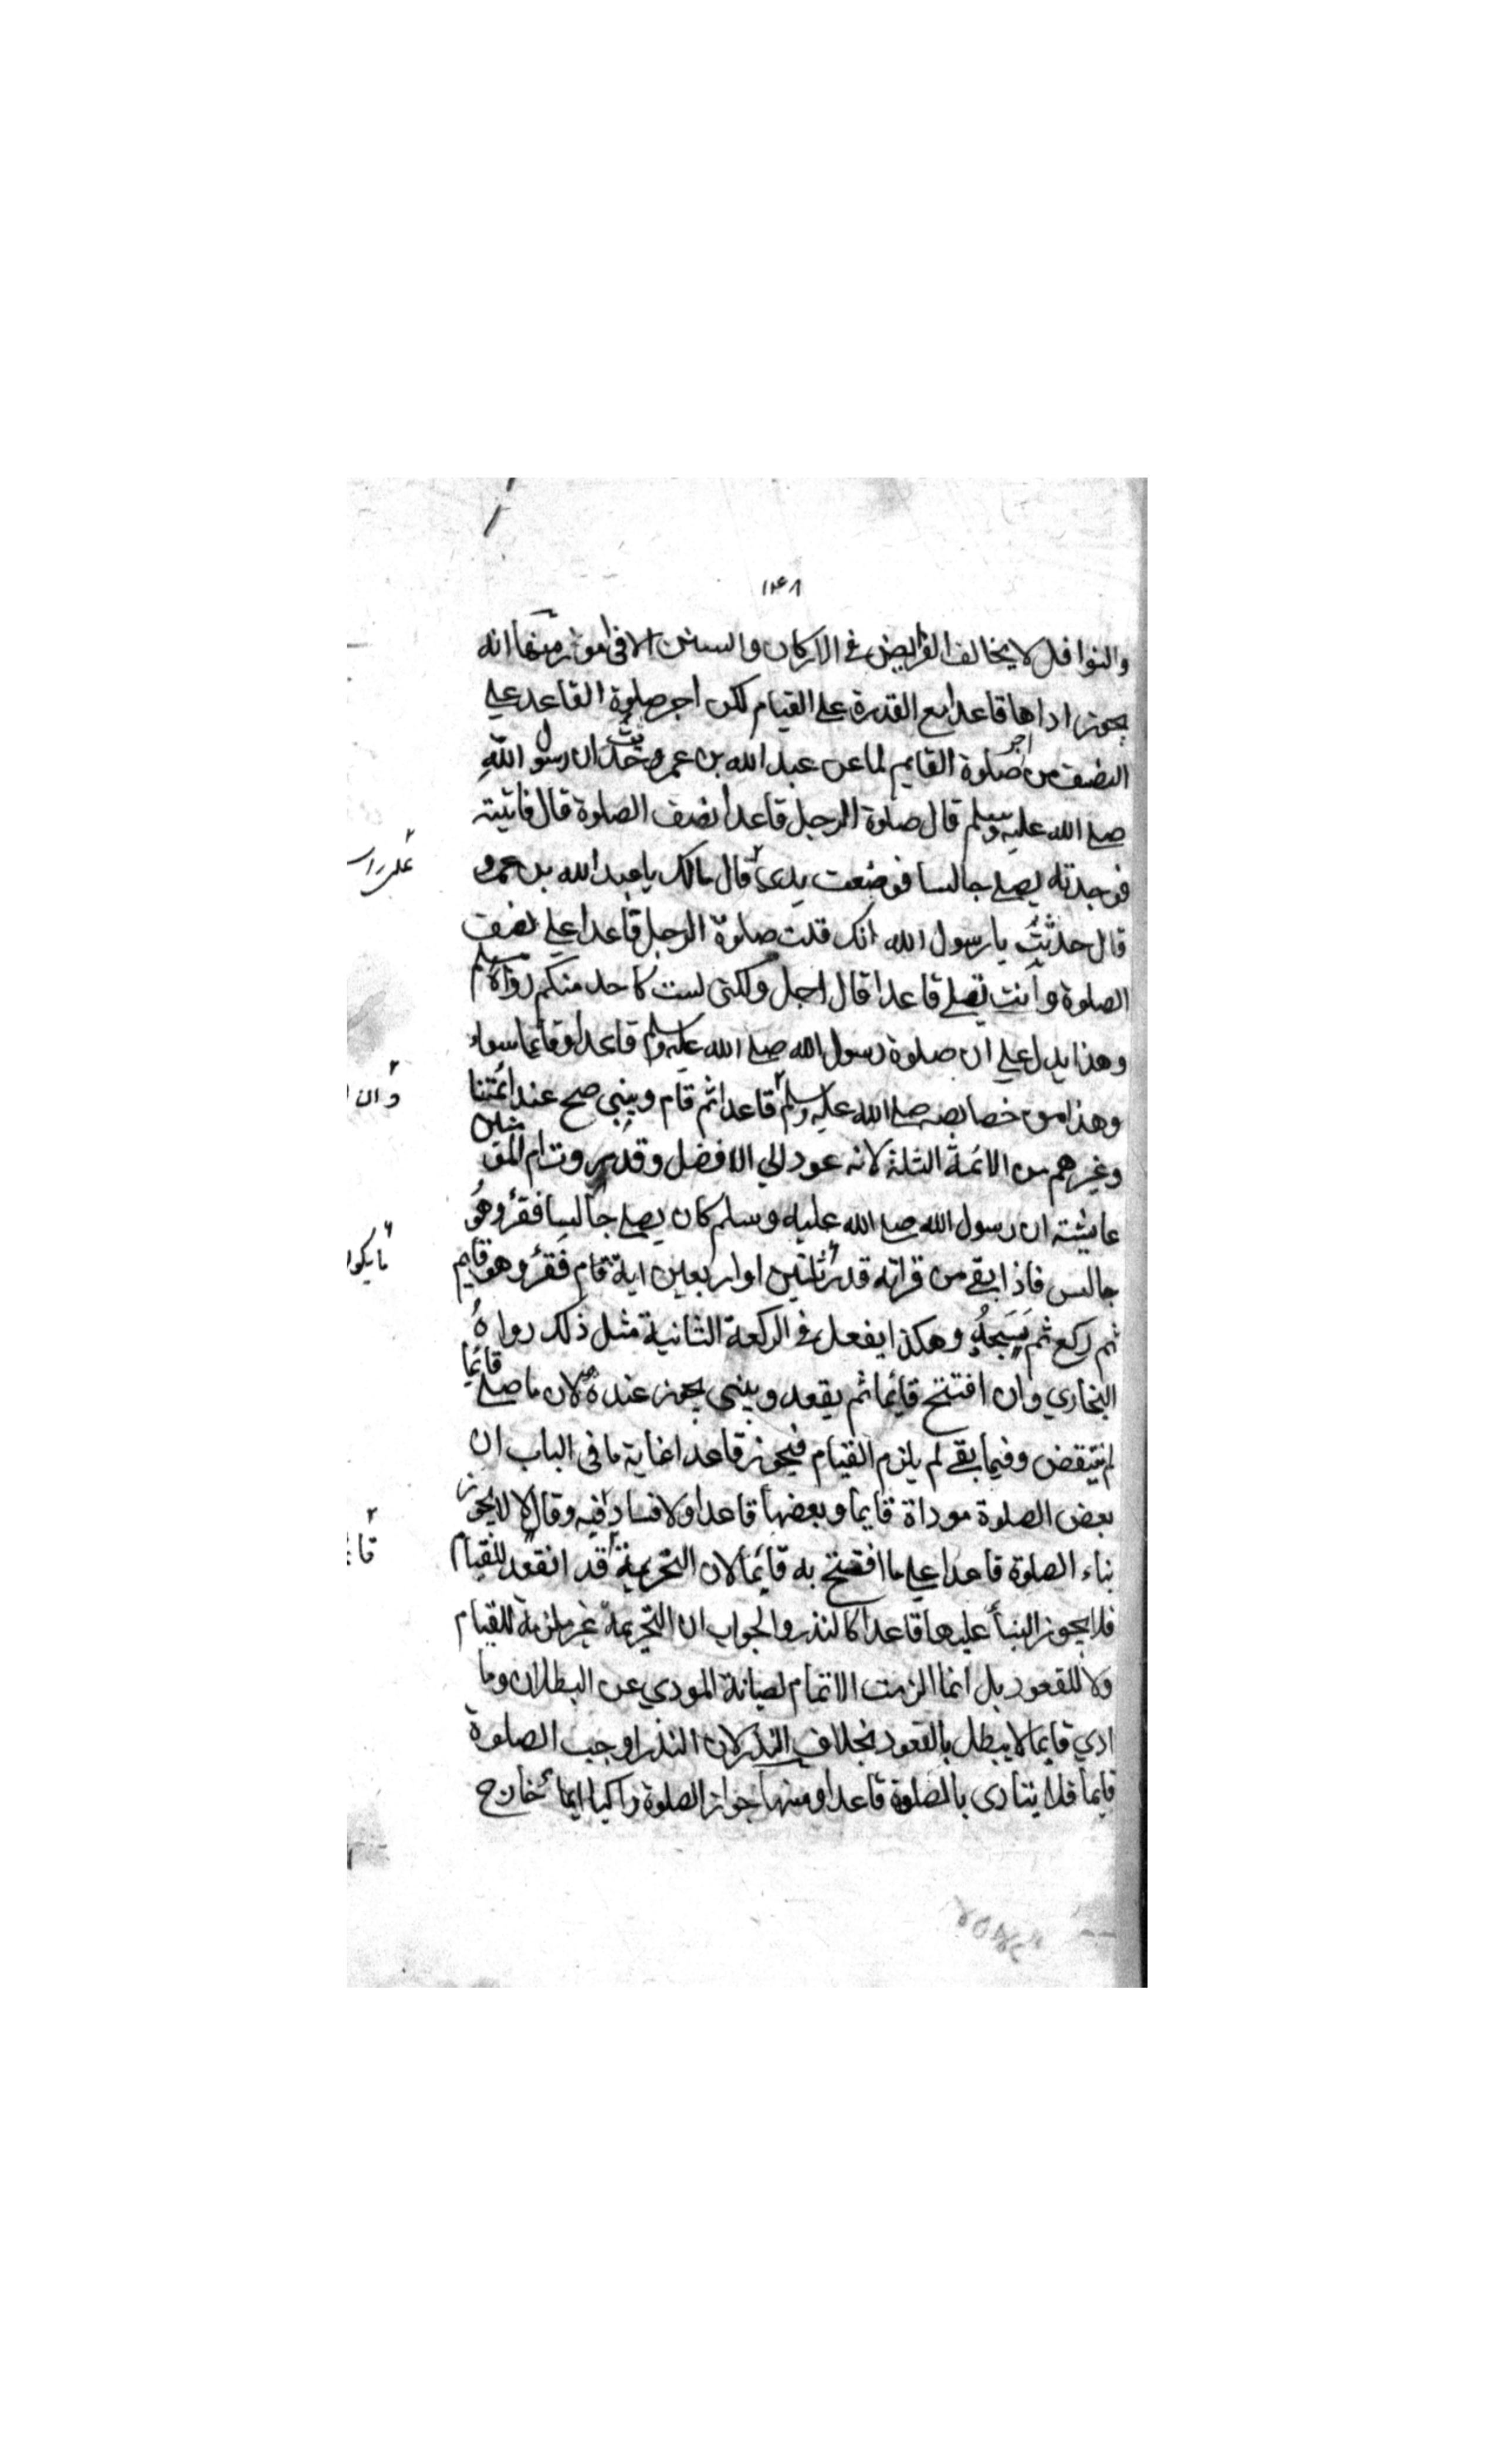 ١٤٨
والنوافل لا يخالف الفرايض في الاركان والسنن الا في امور منها انه
يجوز اداها قاعدا مع القدرة على القيام لكن اجر صلوة القاعد على
النصف من اجر صلوة القايم لما عن عبد الله بن عمرو حدثت ان رسول الله
صلى الله عليه وسلم قال صلوة الرجل قاعدا نصف الصلوة قال فاتيته
فوجدته يصلي جالسا فوضعت يدي قال مالك يا عبد الله بن عمرو
قال حدثت يا رسول الله انك قلت صلوة الرجل قاعدا على نصف
الصلوة وانت تصلي قاعدا قال اجل ولكني لست كاحد منكم رواه مسلم
وهذا يدل على ان صلوة رسول الله صلى الله عليه وسلم قاعدا وقائما سواء
وهذا من خصايصه صلى الله عليه وسلم قاعدا ثم قام ويبني صح عند ائمتنا
وغيرهم من الائمة الثلثة لانه عود الي الافضل وقد روت ام المؤمنين
عايشة ان رسول الله صلى الله عليه وسلم كان يصلي جالسا فقرؤ وهو
جالس فاذا بقي من قراته قدر ثلثين او اربعين اية قام فقرؤ وهو قايم
ثم ركع ثم يسجد وهكذا يفعل في الركعة الثانية مثل ذلك رواه
البخاري وان افتتح قايما ثم يقعد ويبني يجوز عنده لان ما صلى قائما
لم ينتقض وفيما بقي لم يلزم القيام فيجوز قاعدا غاية ما في الباب ان
بعض الصلوة موداة قايما وبعضها قاعدا ولا فساد فيه وقالا لا يجوز
بناء الصلوة قاعدا على ما افتتح به قائما لان التحريمة قد انقعد للقيام
فلا يجوز البنأ عليها قاعدا كالنذر والجواب ان التحريمة غير ملزمة للقيام
ولا للقعود بل انما الزمت الاتمام لصيانة المودي عن البطلان وما
ادي قايما لا يبطل بالقعود بخلاف النذر لان النذر اوجب الصلوة
قايما فلا يتادى بالصلوة قاعدا ومنها جواز الصلوة راكبا ايمائ خارج
على راس
وان
ما يكون
قا